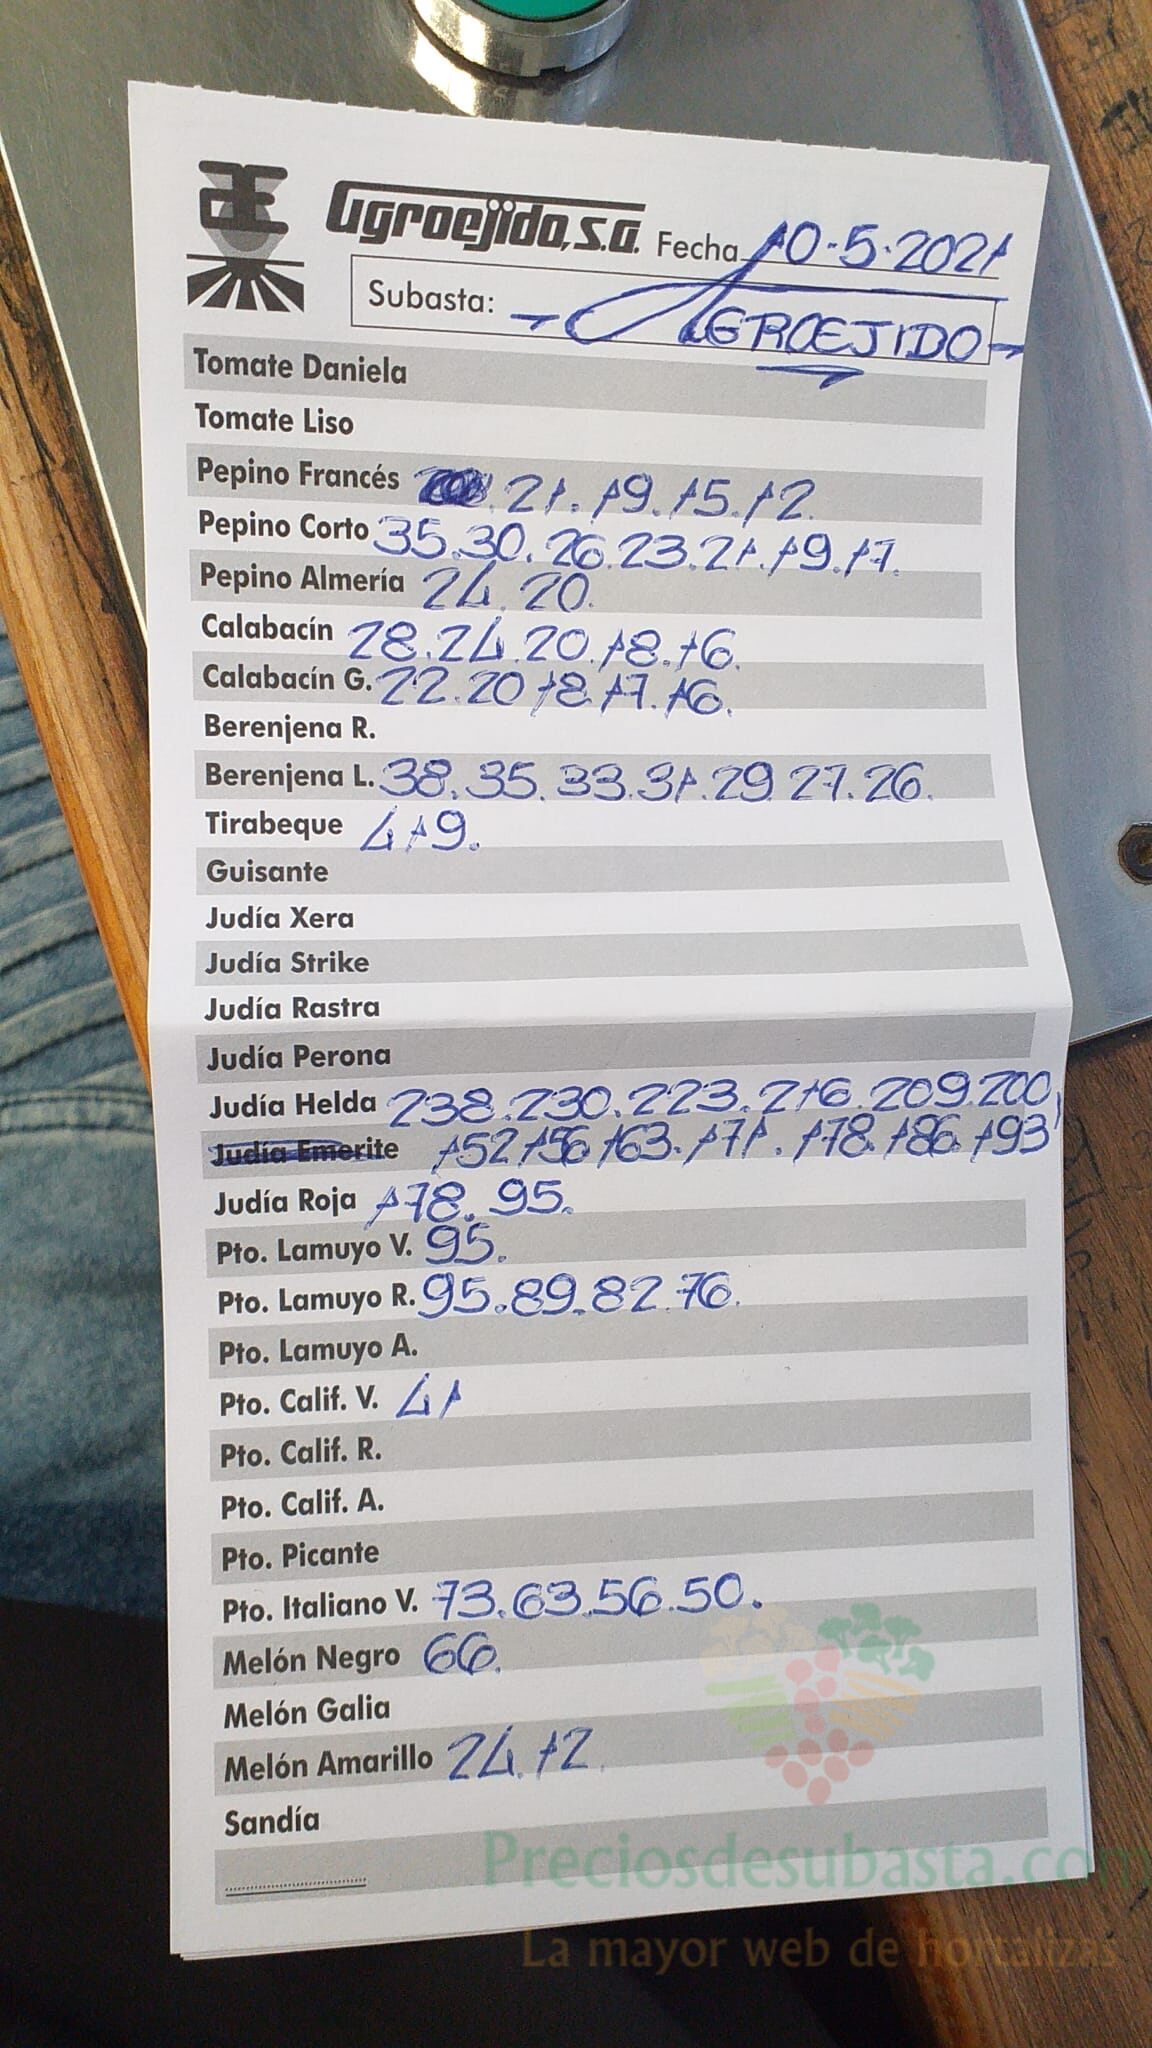 Agroejido, S.A. Fecha 10-5-2021
Subasta: AGROEJIDO
Tomate Daniela
Tomate Liso
Pepino Francés 21. 19. 15. 12.
Pepino Corto 35. 30. 26. 23. 21. 19. 17.
Pepino Almería 24. 20.
Calabacín 28. 24. 20. 18. 16.
Calabacín G. 22. 20 18. 17. 16.
Berenjena R.
Berenjena L. 38. 35. 33. 31. 29. 27. 26.
Tirabeque 419.
Guisante
Judía Xera
Judía Strike
Judía Rastra
Judía Perona
Judía Helda 238. 230. 223. 216. 209. 200
Judía Emerite 152 156 163. 171. 178. 186. 193
Judía Roja 178. 95.
Pto. Lamuyo V. 95.
Pto. Lamuyo R. 95. 89. 82. 76.
Pto. Lamuyo A.
Pto. Calif. V. 41
Pto. Calif. R.
Pto. Calif. A.
Pto. Picante
Pto. Italiano V. 73. 63. 56. 50.
Melón Negro 66.
Melón Galia
Melón Amarillo 24. 12.
Sandía
Preciosdesubasta.com
La mayor web de hortalizas